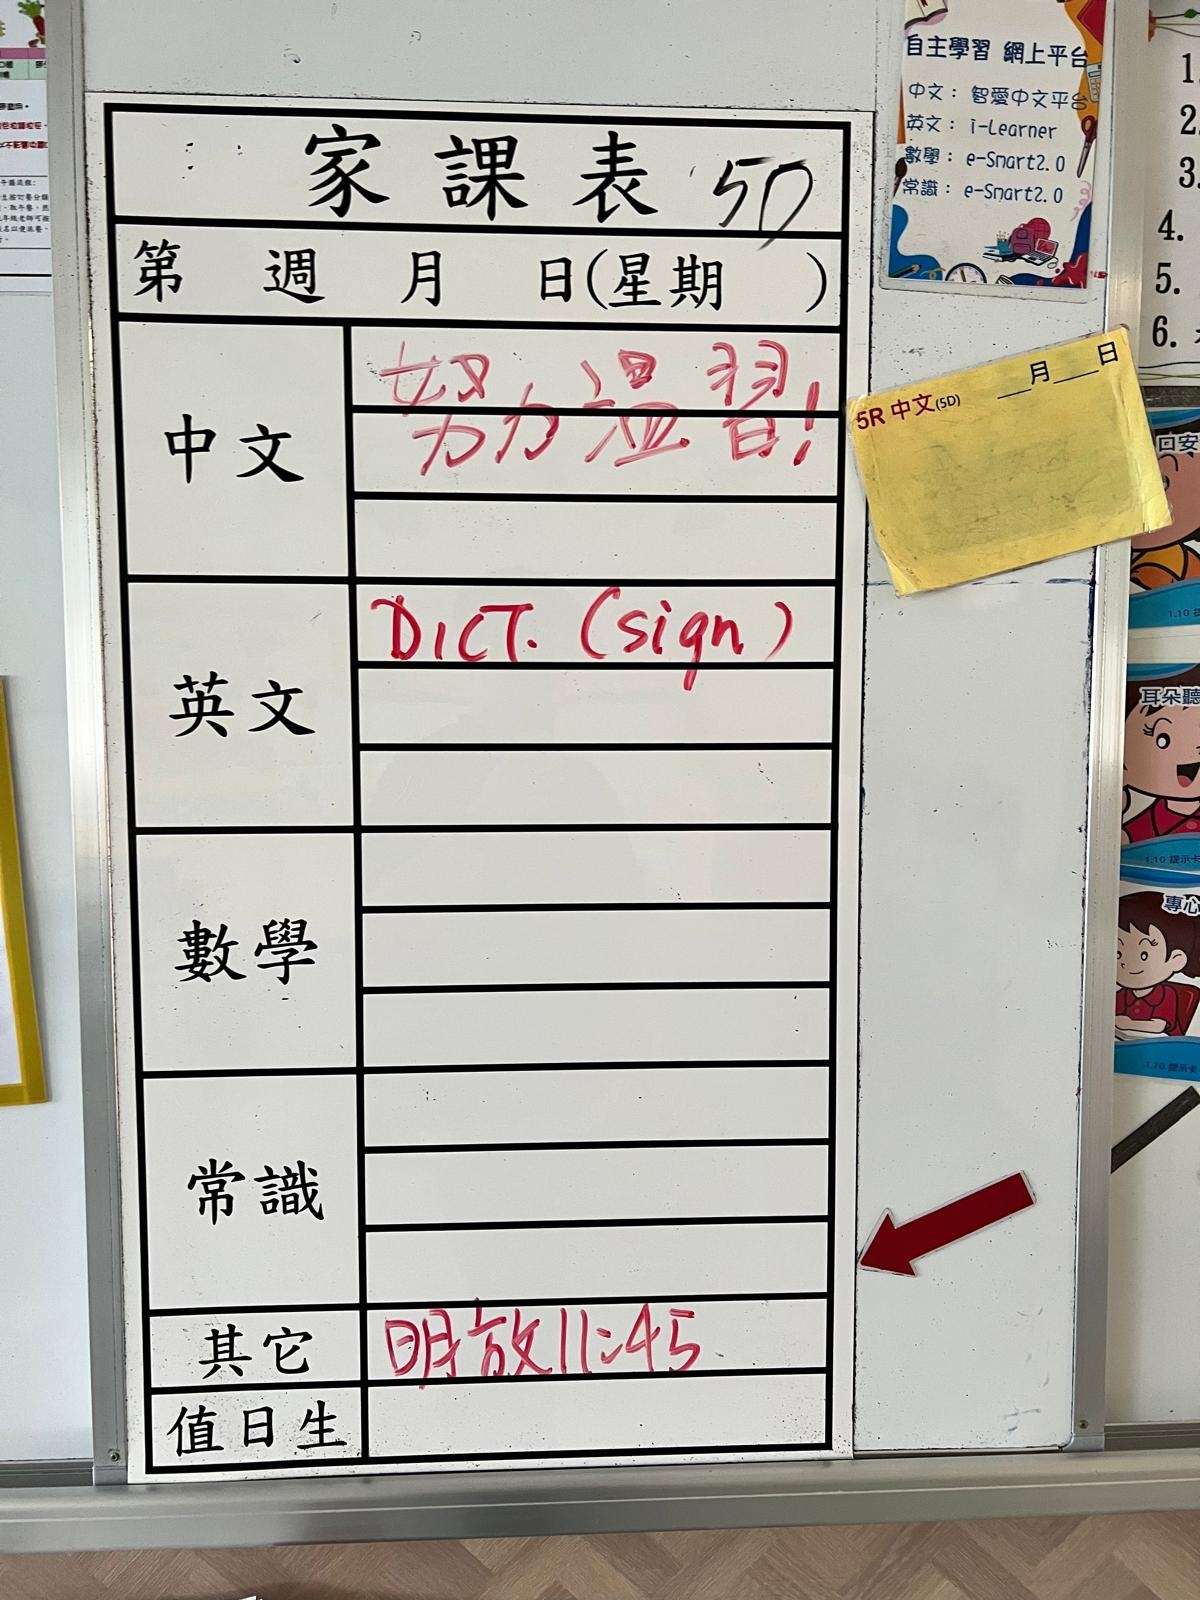 家課表 5D
第 週 月 日(星期 )
中文
努力溫習!
英文
DICT. (sign)
數學
常識
其它
明放11:45
值日生
自主學習 網上平台
中文： 智愛中文平台
英文： i-Learner
數學： e-Smart2.0
常識： e-Smart2.0
5R 中文(5D) ___月___日
1.
2.
3.
4.
5.
6.
耳朵聽
1.10 提示卡
專心
1.10 提示卡